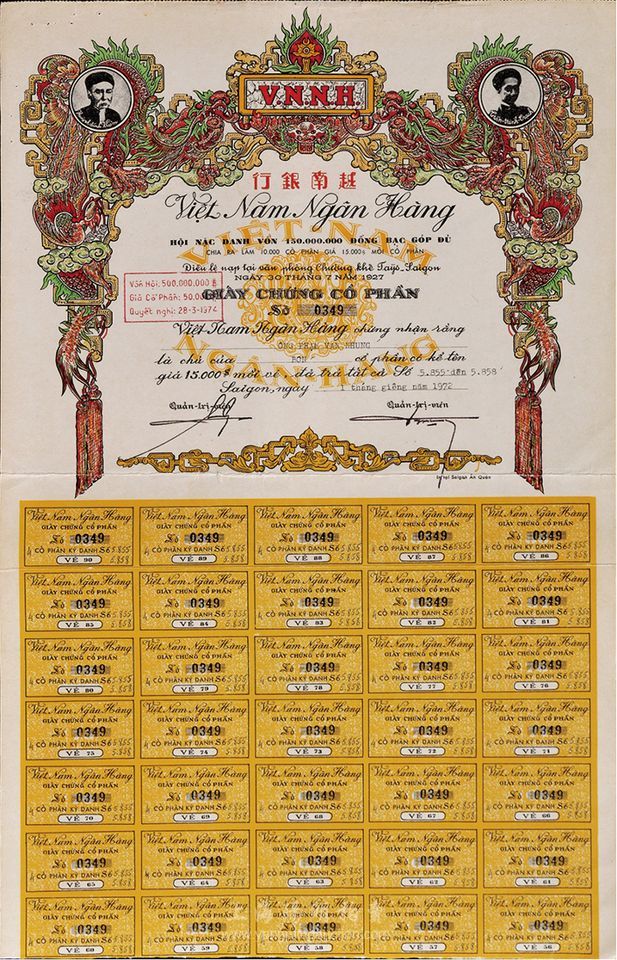 V.N.N.H
行銀南越
Việt Nam Ngân Hàng
HỘI NẶC DANH VỐN 150.000.000 ĐỒNG BẠC GÓP ĐỦ
CHIA RA LÀM 10.000 CỔ PHẦN GIÁ 15.000$ MỖI CỔ PHẦN
Điều lệ nạp tại văn phòng Chưởng khế Saigon
NGÀY 30 THÁNG 7 NĂM 1927
Vốn Hội: 500.000.000 $
Giá Cổ Phần: 50.00
Quyết nghị: 28-3-1972
VIỆT NAM
NGÂN-HÀNG
GIẤY CHỨNG CỔ PHẦN
Số 0349
Việt-Nam Ngân Hàng chứng nhận rằng
ÔNG PHẠM VĂN NHUNG
là chủ của BỐN cổ phần có kể tên
giá 15.000$ một vé đã trả tất cả Số 5.855 đến 5.858
Saigon, ngày 1 tháng giêng năm 1972
Quản-trị-viên Quản-trị-viên
In tại Saigon Ấn Quán
Việt Nam Ngân Hàng Việt Nam Ngân Hàng Việt Nam Ngân Hàng Việt Nam Ngân Hàng Việt Nam Ngân Hàng
GIẤY CHỨNG CỔ PHẦN GIẤY CHỨNG CỔ PHẦN GIẤY CHỨNG CỔ PHẦN GIẤY CHỨNG CỔ PHẦN GIẤY CHỨNG CỔ PHẦN
Số 0349 Số 0349 Số 0349 Số 0349 Số 0349
4 CỔ PHẦN KÝ DANH Số 5.855 4 CỔ PHẦN KÝ DANH Số 5.855 4 CỔ PHẦN KÝ DANH Số 5.855 4 CỔ PHẦN KÝ DANH Số 5.855 4 CỔ PHẦN KÝ DANH Số 5.855
VÉ 90 5.858 VÉ 89 5.858 VÉ 88 5.858 VÉ 87 5.858 VÉ 86 5.858
Việt Nam Ngân Hàng Việt Nam Ngân Hàng Việt Nam Ngân Hàng Việt Nam Ngân Hàng Việt Nam Ngân Hàng
GIẤY CHỨNG CỔ PHẦN GIẤY CHỨNG CỔ PHẦN GIẤY CHỨNG CỔ PHẦN GIẤY CHỨNG CỔ PHẦN GIẤY CHỨNG CỔ PHẦN
Số 0349 Số 0349 Số 0349 Số 0349 Số 0349
4 CỔ PHẦN KÝ DANH Số 5.855 4 CỔ PHẦN KÝ DANH Số 5.855 4 CỔ PHẦN KÝ DANH Số 5.855 4 CỔ PHẦN KÝ DANH Số 5.855 4 CỔ PHẦN KÝ DANH Số 5.855
VÉ 85 5.858 VÉ 84 5.858 VÉ 83 5.858 VÉ 82 5.858 VÉ 81 5.858
Việt Nam Ngân Hàng Việt Nam Ngân Hàng Việt Nam Ngân Hàng Việt Nam Ngân Hàng Việt Nam Ngân Hàng
GIẤY CHỨNG CỔ PHẦN GIẤY CHỨNG CỔ PHẦN GIẤY CHỨNG CỔ PHẦN GIẤY CHỨNG CỔ PHẦN GIẤY CHỨNG CỔ PHẦN
Số 0349 Số 0349 Số 0349 Số 0349 Số 0349
4 CỔ PHẦN KÝ DANH Số 5.855 4 CỔ PHẦN KÝ DANH Số 5.855 4 CỔ PHẦN KÝ DANH Số 5.855 4 CỔ PHẦN KÝ DANH Số 5.855 4 CỔ PHẦN KÝ DANH Số 5.855
VÉ 80 5.858 VÉ 79 5.858 VÉ 78 5.858 VÉ 77 5.858 VÉ 76 5.858
Việt Nam Ngân Hàng Việt Nam Ngân Hàng Việt Nam Ngân Hàng Việt Nam Ngân Hàng Việt Nam Ngân Hàng
GIẤY CHỨNG CỔ PHẦN GIẤY CHỨNG CỔ PHẦN GIẤY CHỨNG CỔ PHẦN GIẤY CHỨNG CỔ PHẦN GIẤY CHỨNG CỔ PHẦN
Số 0349 Số 0349 Số 0349 Số 0349 Số 0349
4 CỔ PHẦN KÝ DANH Số 5.855 4 CỔ PHẦN KÝ DANH Số 5.855 4 CỔ PHẦN KÝ DANH Số 5.855 4 CỔ PHẦN KÝ DANH Số 5.855 4 CỔ PHẦN KÝ DANH Số 5.855
VÉ 75 5.858 VÉ 74 5.858 VÉ 73 5.858 VÉ 72 5.858 VÉ 71 5.858
Việt Nam Ngân Hàng Việt Nam Ngân Hàng Việt Nam Ngân Hàng Việt Nam Ngân Hàng Việt Nam Ngân Hàng
GIẤY CHỨNG CỔ PHẦN GIẤY CHỨNG CỔ PHẦN GIẤY CHỨNG CỔ PHẦN GIẤY CHỨNG CỔ PHẦN GIẤY CHỨNG CỔ PHẦN
Số 0349 Số 0349 Số 0349 Số 0349 Số 0349
4 CỔ PHẦN KÝ DANH Số 5.855 4 CỔ PHẦN KÝ DANH Số 5.855 4 CỔ PHẦN KÝ DANH Số 5.855 4 CỔ PHẦN KÝ DANH Số 5.855 4 CỔ PHẦN KÝ DANH Số 5.855
VÉ 70 5.858 VÉ 69 5.858 VÉ 68 5.858 VÉ 67 5.858 VÉ 66 5.858
Việt Nam Ngân Hàng Việt Nam Ngân Hàng Việt Nam Ngân Hàng Việt Nam Ngân Hàng Việt Nam Ngân Hàng
GIẤY CHỨNG CỔ PHẦN GIẤY CHỨNG CỔ PHẦN GIẤY CHỨNG CỔ PHẦN GIẤY CHỨNG CỔ PHẦN GIẤY CHỨNG CỔ PHẦN
Số 0349 Số 0349 Số 0349 Số 0349 Số 0349
4 CỔ PHẦN KÝ DANH Số 5.855 4 CỔ PHẦN KÝ DANH Số 5.855 4 CỔ PHẦN KÝ DANH Số 5.855 4 CỔ PHẦN KÝ DANH Số 5.855 4 CỔ PHẦN KÝ DANH Số 5.855
VÉ 65 5.858 VÉ 64 5.858 VÉ 63 5.858 VÉ 62 5.858 VÉ 61 5.858
Việt Nam Ngân Hàng Việt Nam Ngân Hàng Việt Nam Ngân Hàng Việt Nam Ngân Hàng Việt Nam Ngân Hàng
GIẤY CHỨNG CỔ PHẦN GIẤY CHỨNG CỔ PHẦN GIẤY CHỨNG CỔ PHẦN GIẤY CHỨNG CỔ PHẦN GIẤY CHỨNG CỔ PHẦN
Số 0349 Số 0349 Số 0349 Số 0349 Số 0349
4 CỔ PHẦN KÝ DANH Số 5.855 4 CỔ PHẦN KÝ DANH Số 5.855 4 CỔ PHẦN KÝ DANH Số 5.855 4 CỔ PHẦN KÝ DANH Số 5.855 4 CỔ PHẦN KÝ DANH Số 5.855
VÉ 60 VÉ 59 VÉ 58 VÉ 57 VÉ 56